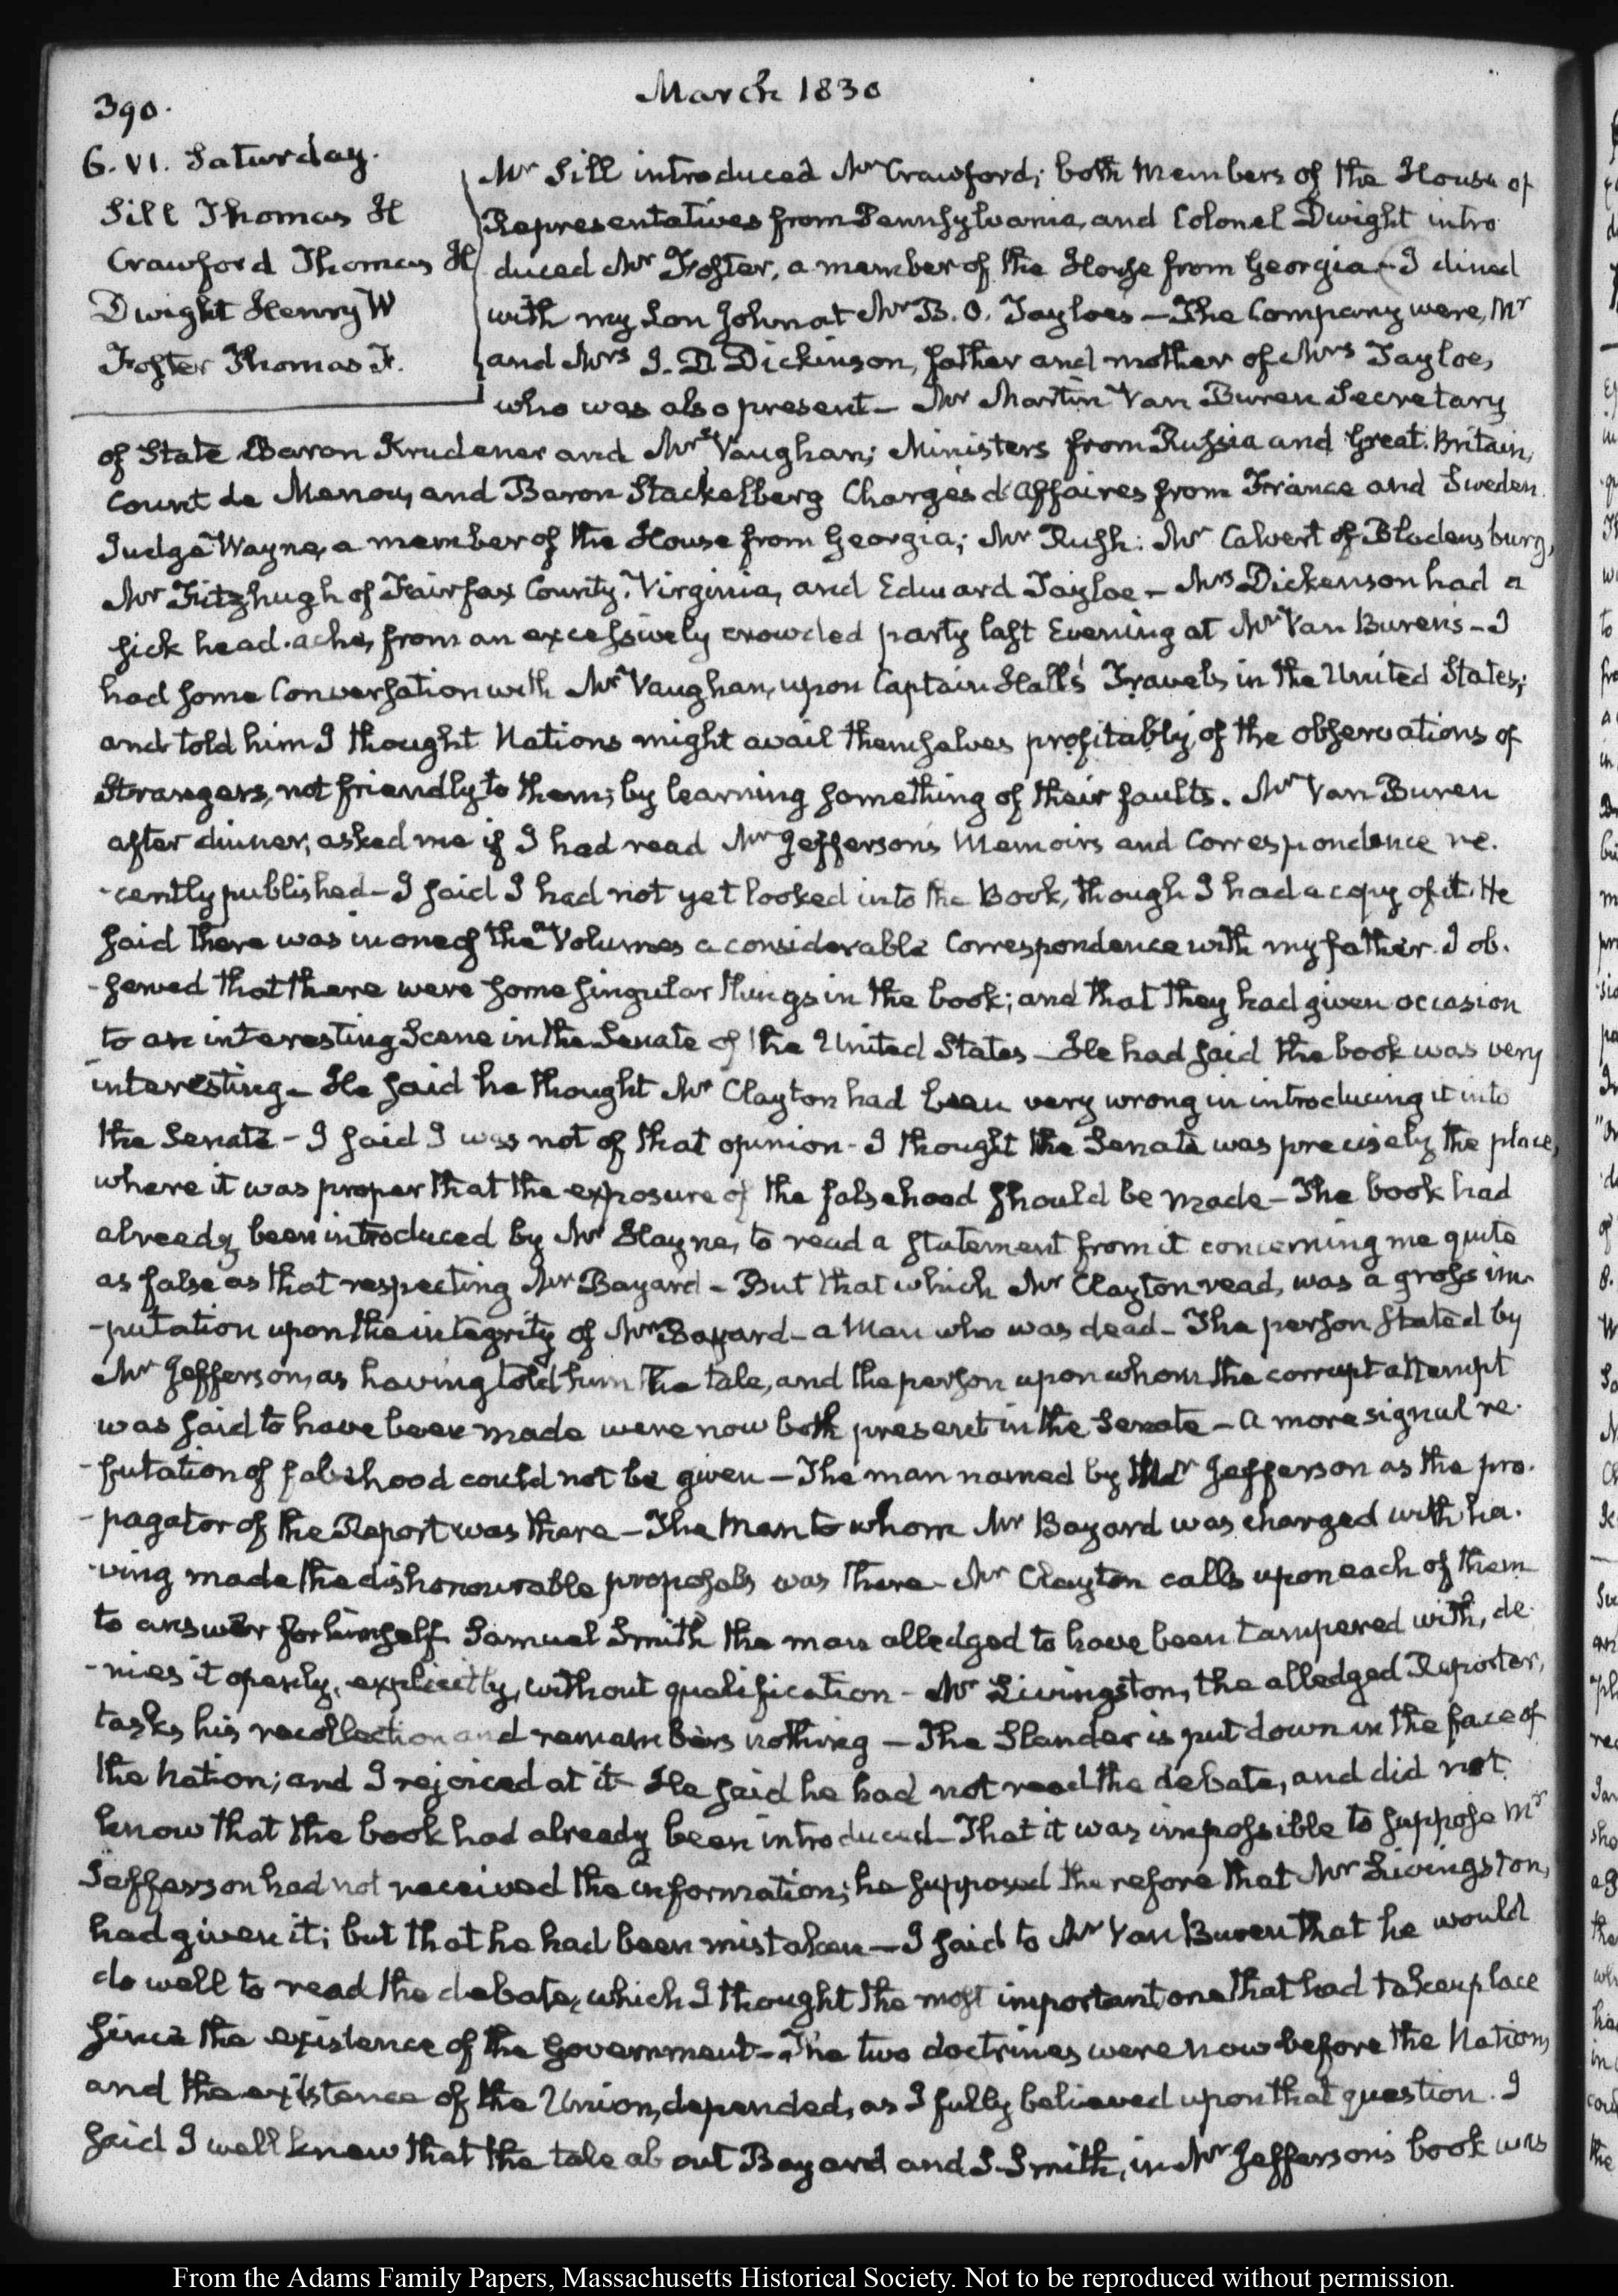 390.
March 1830
6. VI. Saturday.
Sill Thomas H
Crawford Thomas H
Dwight Henry W
Foster Thomas F.
Mr Sill introduced Mr Crawford; both Members of the House of
Representatives from Pennsylvania, and Colonel Dwight intro
duced Mr Foster, a member of the House from Georgia—I dined
with my Son John at Mr B. O. Tayloe's—The Company were, Mr
and Mrs J. D. Dickinson, father and mother of Mrs Tayloe,
who was also present—Mr Martin Van Buren Secretary
of State Baron Krudener and Mr Vaughan; Ministers from Russia and Great Britain,
Count de Menou, and Baron Stackelberg Chargés d'Affaires from France and Sweden.
Judge Wayne, a member of the House from Georgia; Mr Rush: Mr Calvert of Bladensburg,
Mr Fitzhugh of Fairfax County, Virginia, and Edward Tayloe—Mrs Dickenson had a
sick head-ache, from an excessively crowded party last Evening at Mr Van Buren's—I
had some Conversation with Mr Vaughan, upon Captain Hall's Travels in the United States;
and told him I thought Nations might avail themselves profitably of the observations of
Strangers, not friendly to them; by learning something of their faults. Mr Van Buren
after dinner, asked me if I had read Mr Jefferson's Memoirs and Correspondence re-
-cently published—I said I had not yet looked into the Book, though I had a copy of it. He
said there was in one of the Volumes a considerable Correspondence with my father. I ob-
-served that there were some singular things in the book; and that they had given occasion
to an interesting Scene in the Senate of the United States—He had said the book was very
interesting—He said he thought Mr Clayton had been very wrong in introducing it into
the Senate—I said I was not of that opinion—I thought the Senate was precisely the place,
where it was proper that the exposure of the falsehood should be made—The book had
already been introduced by Mr Hayne, to read a statement from it concerning me quite
as false as that respecting Mr Bayard—But that which Mr Clayton read, was a gross im-
-putation upon the integrity of Mr Bayard—a Man who was dead—The person stated by
Mr Jefferson, as having told him the tale, and the person upon whom the corrupt attempt
was said to have been made were now both present in the Senate—A more signal re-
-futation of falsehood could not be given—The man named by Mr Jefferson as the pro-
-pagator of the Report was there—The Man to whom Mr Bayard was charged with ha-
-ving made the dishonourable proposals was there—Mr Clayton calls upon each of them
to answer for himself. Samuel Smith the man alledged to have been tampered with, de-
-nies it openly, explicitly, without qualification—Mr Livingston, the alledged Reporter,
tasks his recollection and remembers nothing—The Slander is put down in the face of
the Nation; and I rejoiced at it—He said he had not read the debate, and did not
know that the book had already been introduced—That it was impossible to suppose Mr
Jefferson had not received the information; he supposed therefore that Mr Livingston,
had given it; but that he had been mistaken—I said to Mr Van Buren that he would
do well to read the debate, which I thought the most important one that had taken place
since the existence of the Government—The two doctrines were now before the Nation,
and the existence of the Union, depended, as I fully believed upon that question. I
said I well knew that the tale about Bayard and S. Smith, in Mr Jefferson's book was
From the Adams Family Papers, Massachusetts Historical Society. Not to be reproduced without permission.